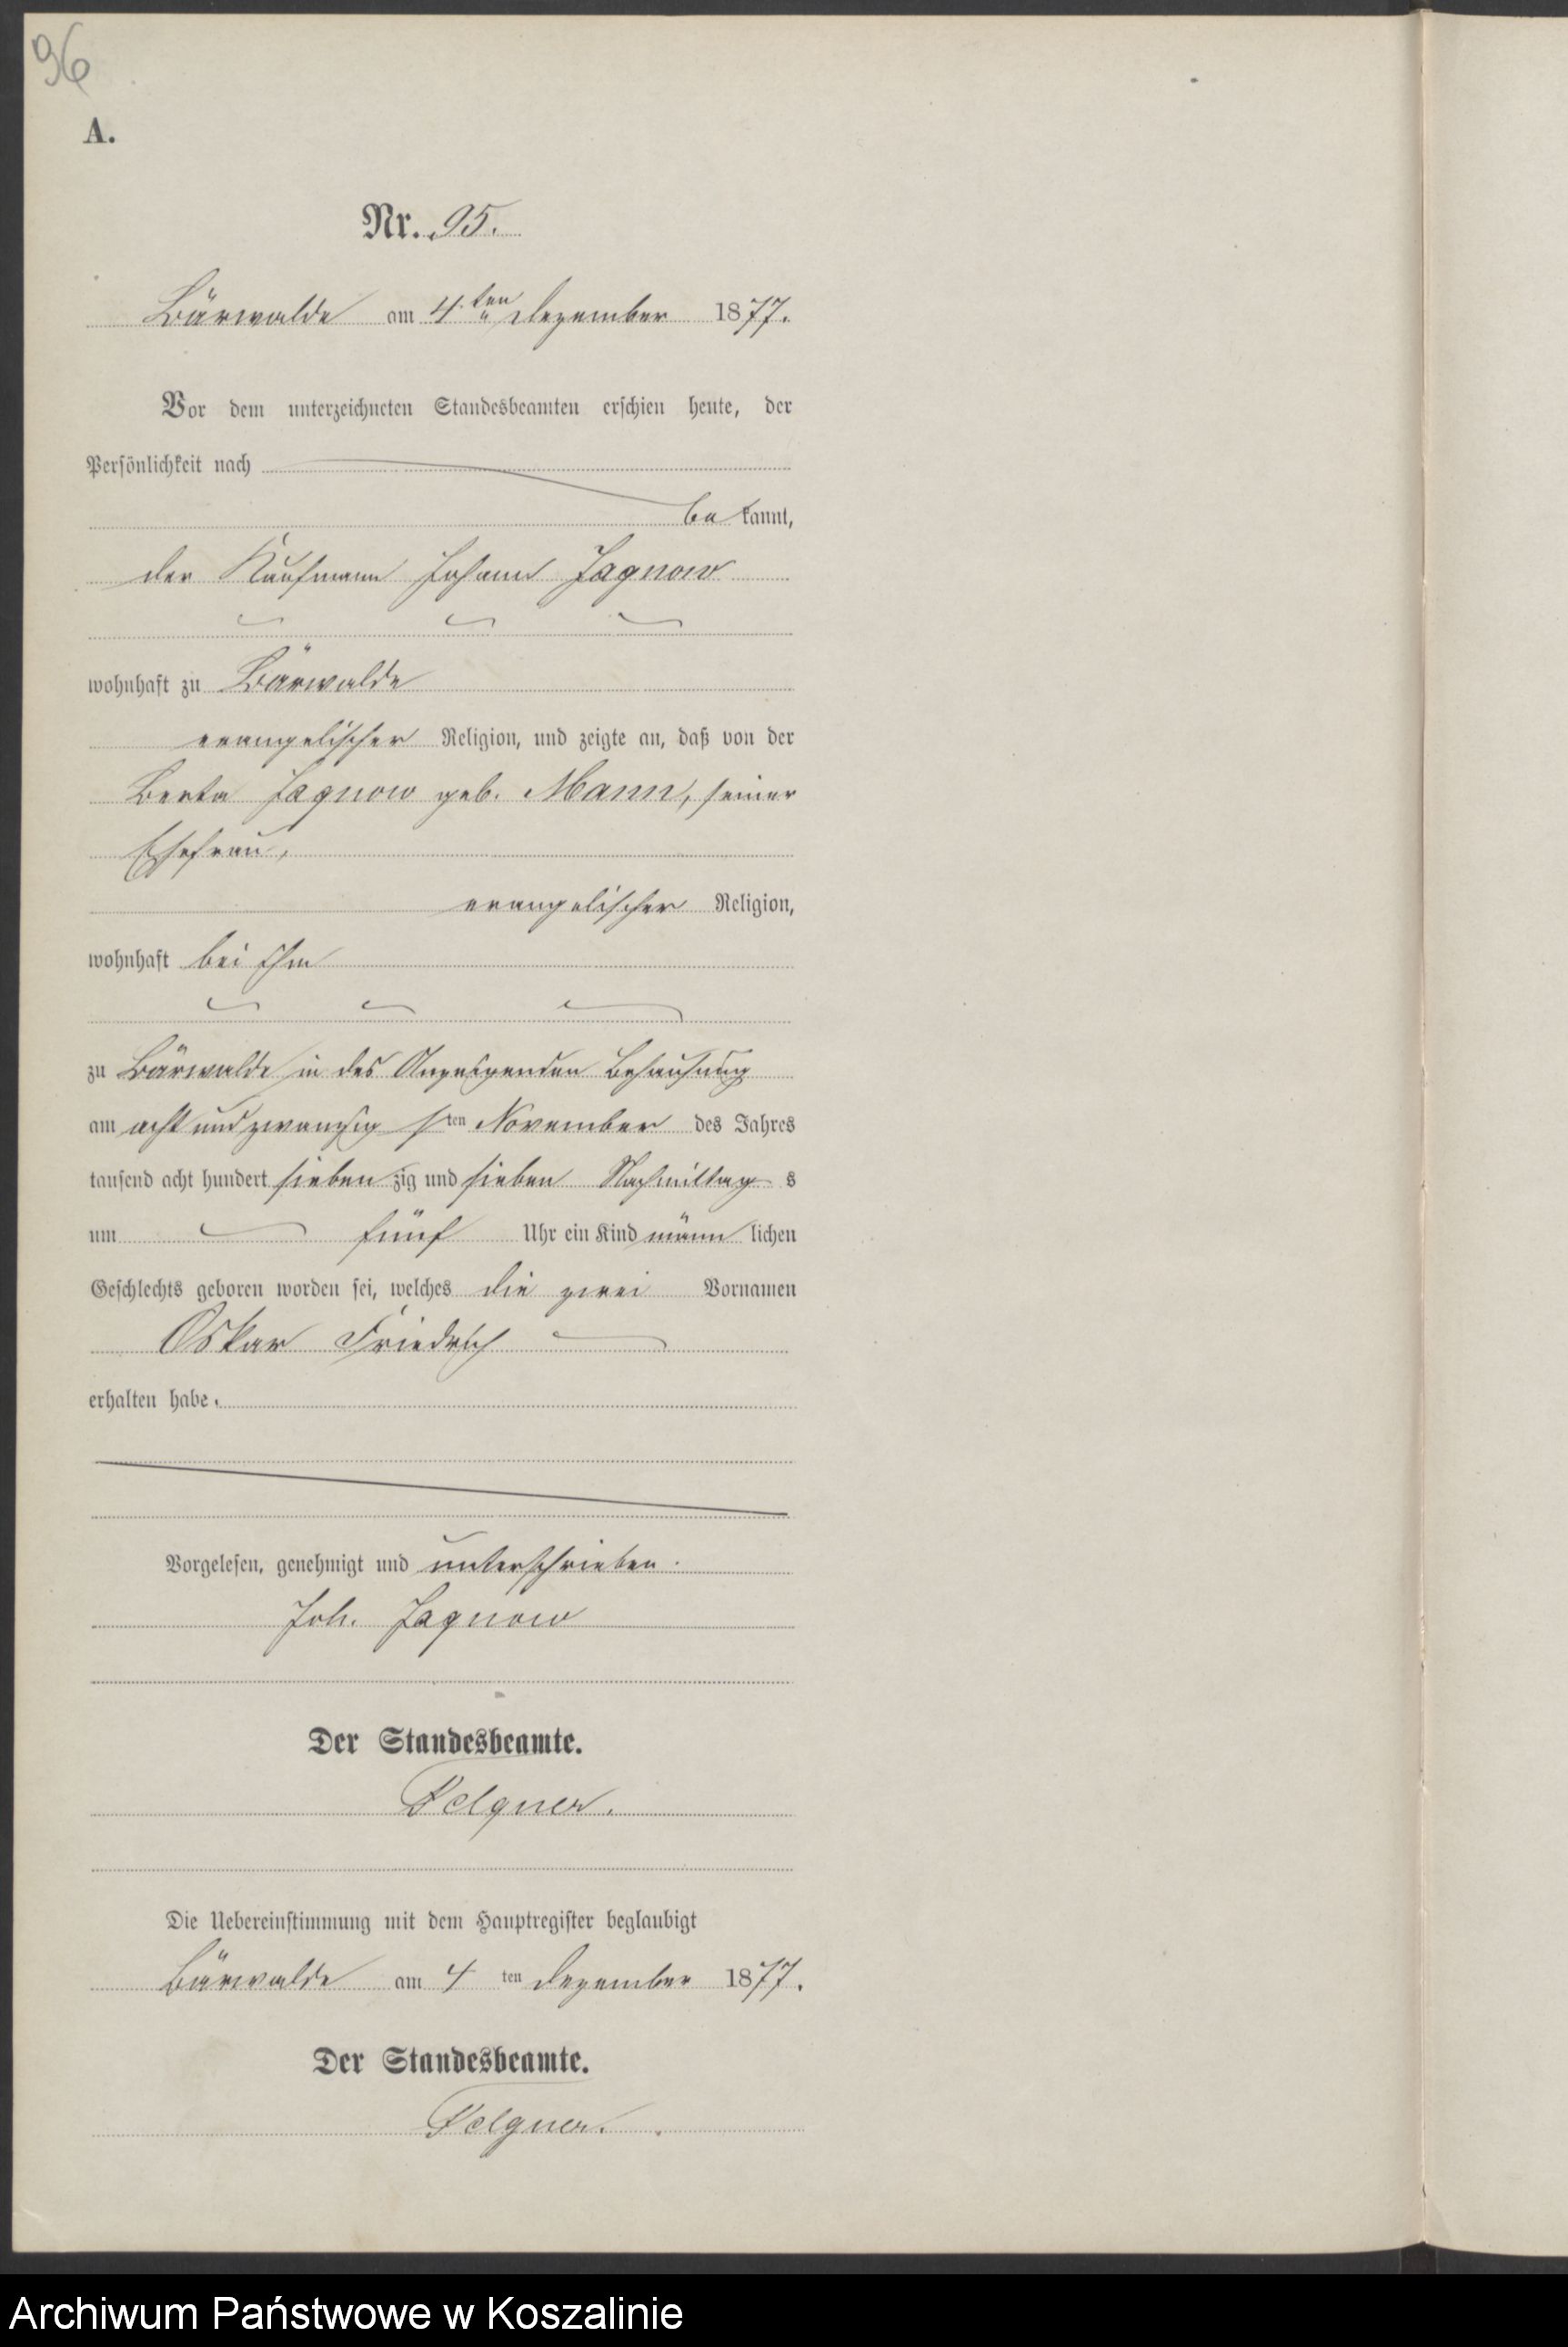 96
A.
Nr. 95.
Bärwalde am 4ten Dezember 1877.
Vor dem unterzeichneten Standesbeamten erschien heute, der
Persönlichkeit nach
be kannt,
der Kaufmann Johann Jagnow
wohnhaft zu Bärwalde
evangelischer Religion, und zeigte an, daß von der
Berta Jagnow geb. Mann, seiner
Ehefrau,
evangelischer Religion,
wohnhaft bei Ihm
zu Bärwalde in des Anzeigenden Behausung
am acht und zwanzig sten November des Jahres
tausend acht hundert sieben zig und sieben Nachmittag s
um fünf Uhr ein Kind männ lichen
Geschlechts geboren worden sei, welches die zwei Vornamen
Oskar Friedrich
erhalten habe.
Vorgelesen, genehmigt und unterschrieben.
Joh. Jagnow
Der Standesbeamte.
Felgner.
Die Uebereinstimmung mit dem Hauptregister beglaubigt
Bärwalde am 4 ten Dezember 1877.
Der Standesbeamte.
Felgner.
Archiwum Państwowe w Koszalinie